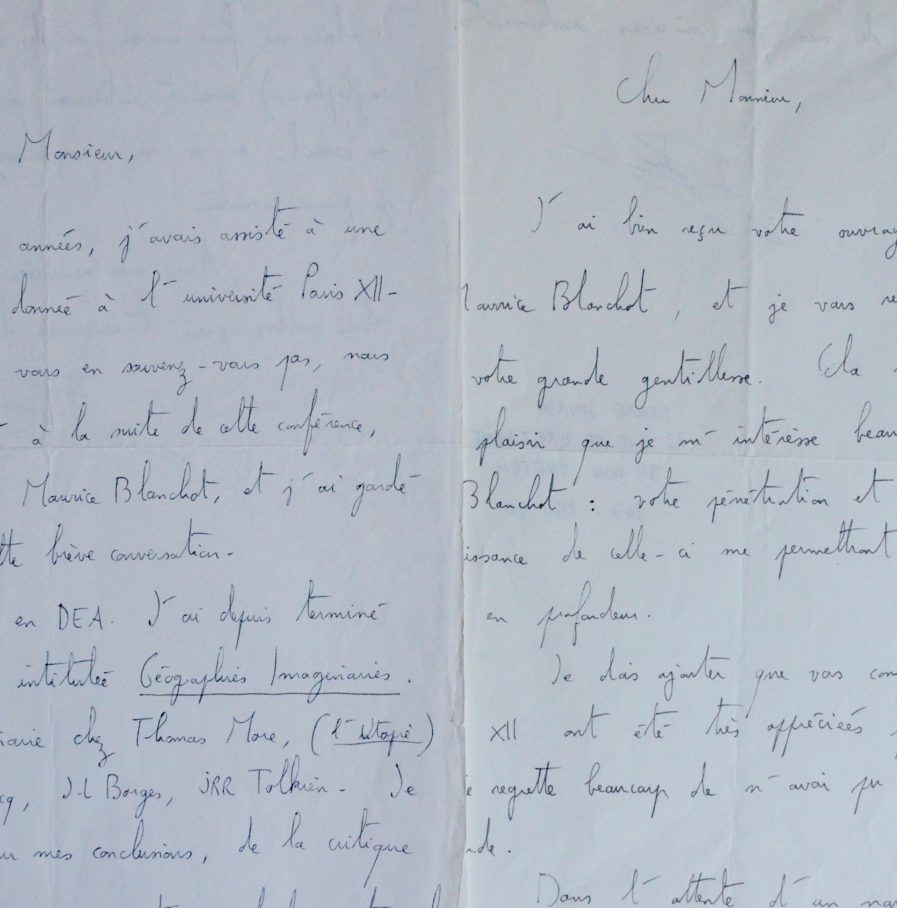 Monsieur,
années, j'avais assisté à une
donnée à l'université Paris XII-
vous en souvenez-vous pas, nous
à la suite de cette conférence,
Maurice Blanchot, et j'ai gardé
brève conversation-
en DEA. J'ai depuis terminé
intitulée Géographies Imaginaires.
chez Thomas More, (l'Utopie)
J-L Borges, JRR Tolkien- Je
mes conclusions, de la critique
Cher Monsieur,
J'ai bien reçu votre ouvrag
Maurice Blanchot, et je vous re
votre grande gentillesse. Cela
plaisir que je m'intéresse beau
Blanchot : votre pénétration et
issance de celle-ci me permettront
en profondeur.
Je dois ajouter que vos con
XII ont été très appréciées
regrette beaucoup de n'avoir pu
nde.
Dans l'attente d'un nou